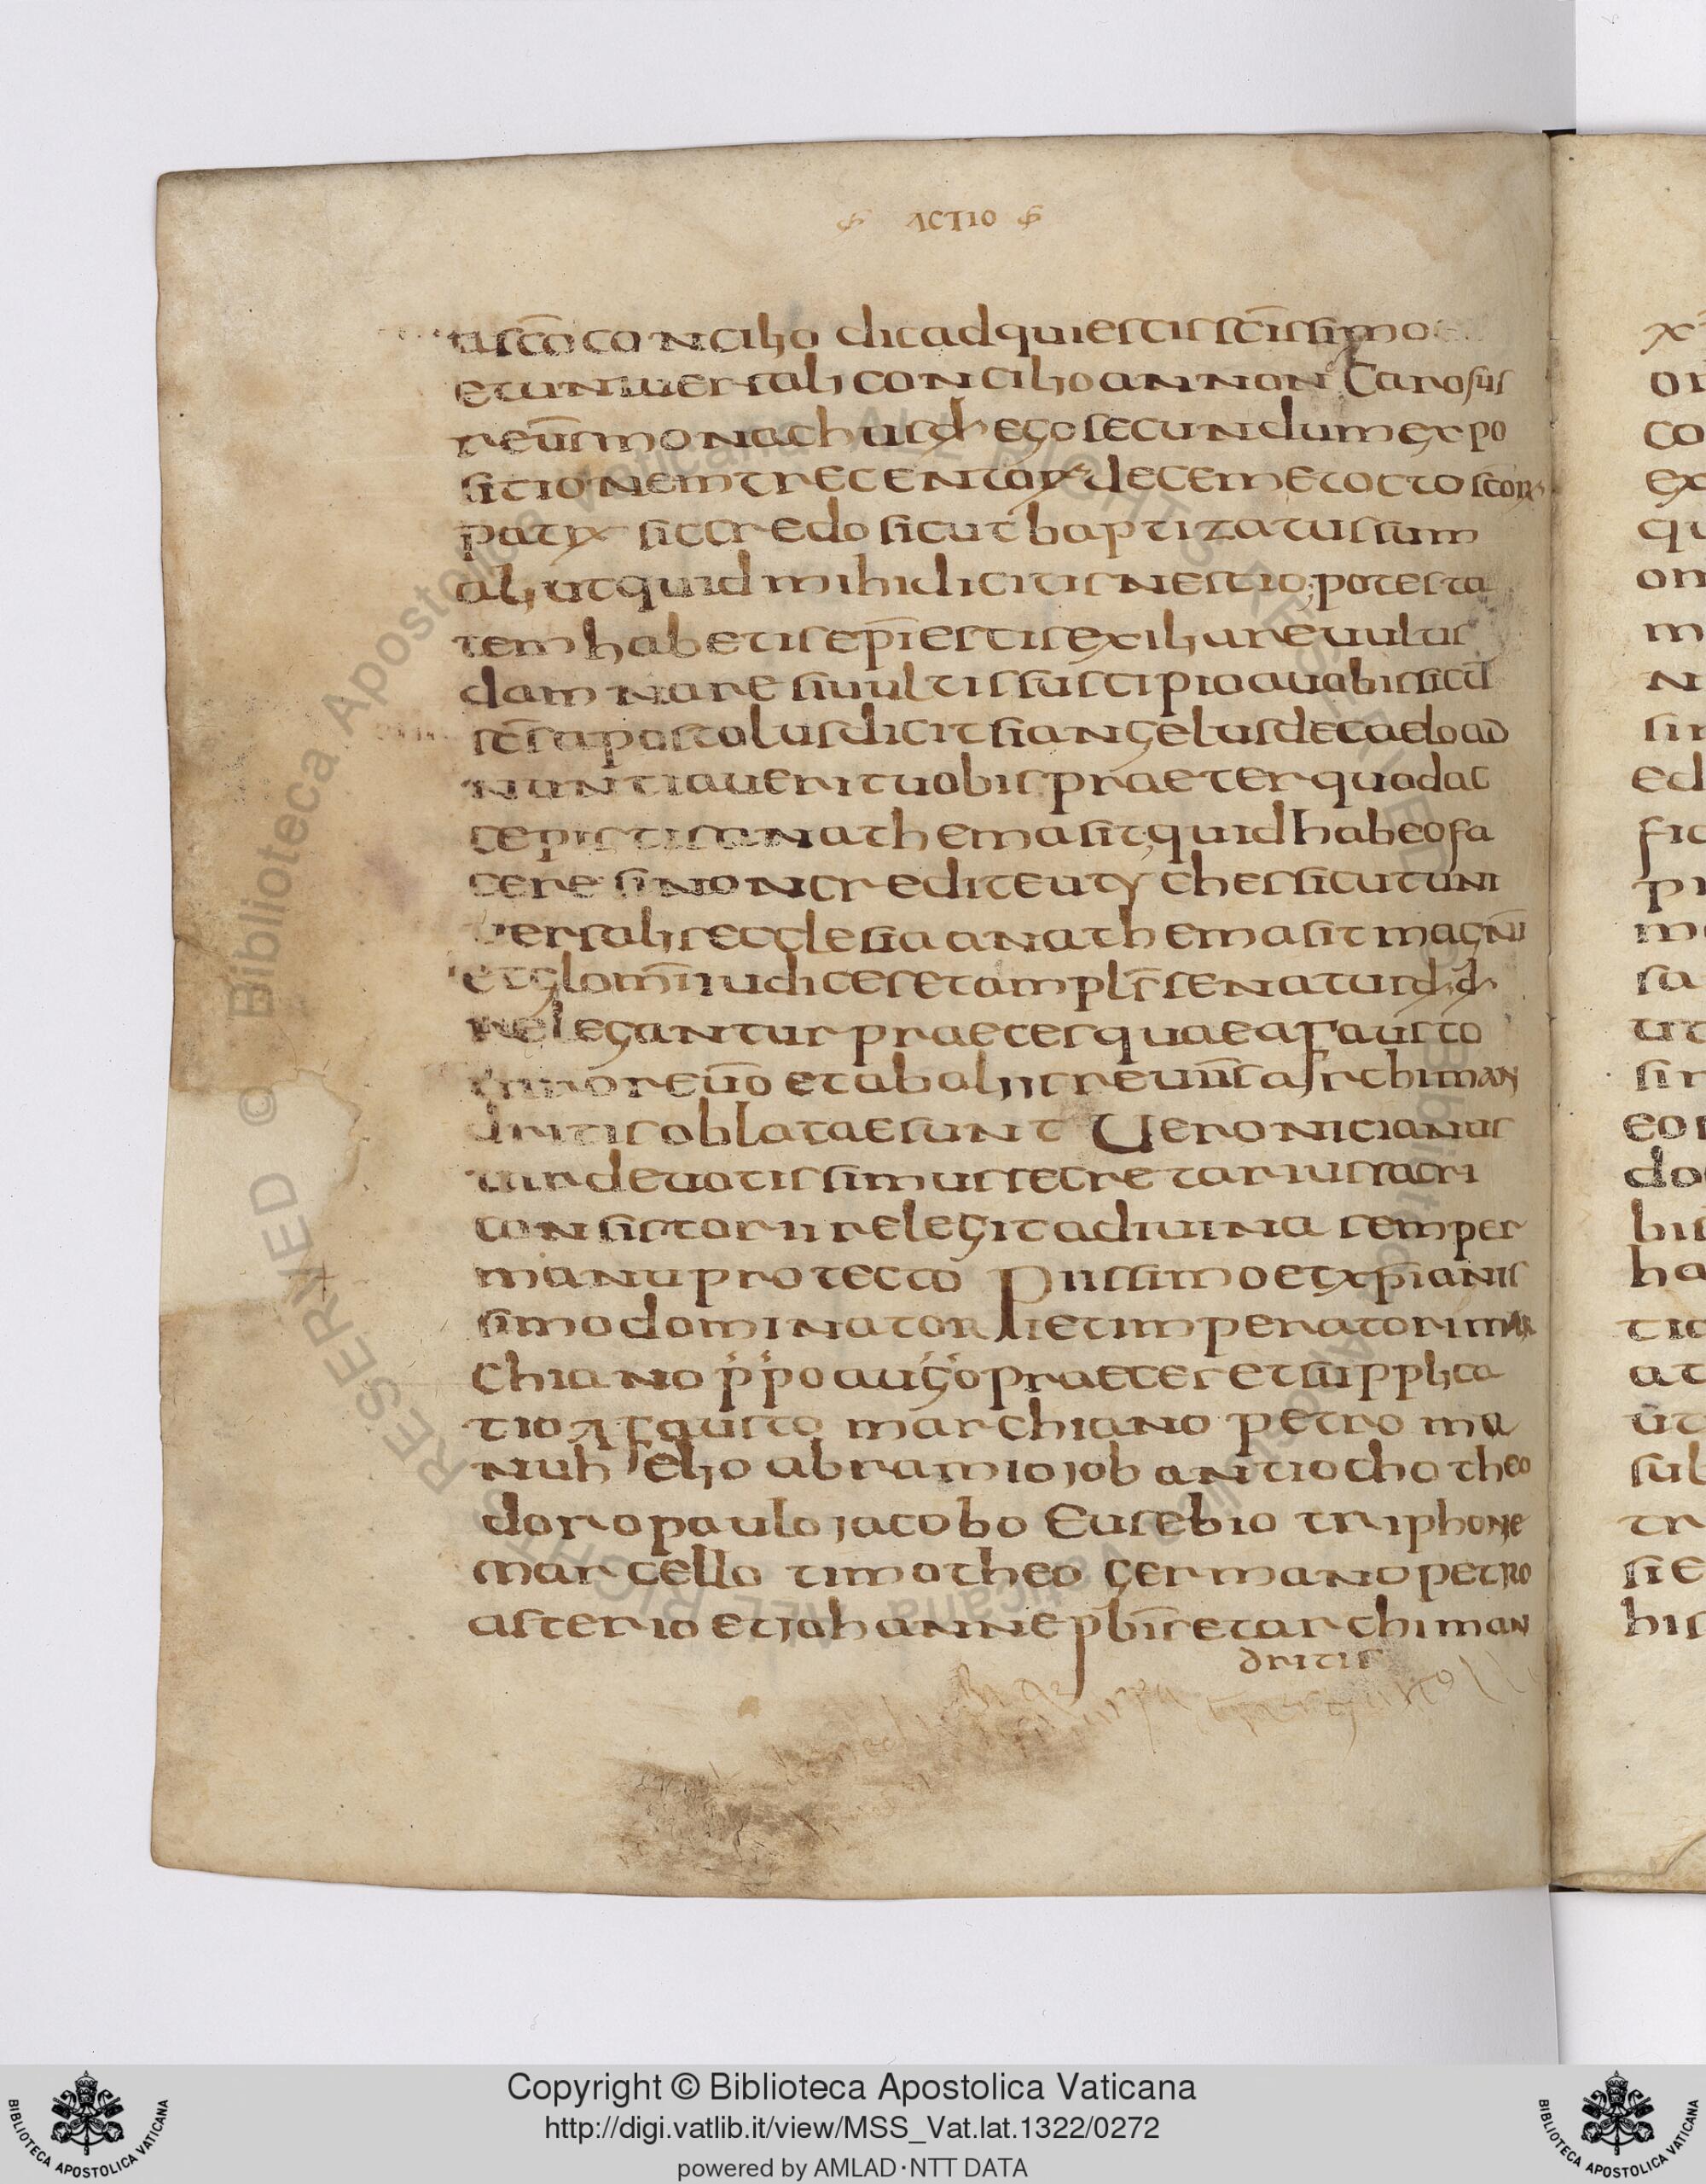 ACTIO
u sc̄o concilio dic adquiescis sc̄issimo
et uniuersali concilio an non Carosus
reūs monachus dx̄ ego secundum expo
sitionem trecentorꝝ decem et octo sc̄orꝝ
patrꝝ sic credo sicut baptizatus sum
aliut quid mihi dicitis nescio; potesta
tem habetis ep̄i estis exiliare uultis
damnare si uultis suscipio a uobis sicut
sc̄s apostolus dicit si angelus de caelo ad
nuntiauerit uobis praeter quod ac
cepistis anathema sit; quid habeo fa
cere si non credit eutyches sicut uni
uersalis ecclesia anathema sit magnī
et glom̄i iudices et ampl̄s senatus dx̄ dx̄
Relegantur praeces quae a Fausto
uiro reūo et ab aliis reuūs archiman
dritis oblatae sunt Ueronicianus
uir deuotissimus secretarius sacri
consistorii relegit a diuina semper
manu protecto Piissimo et xp̄ianis
simo dominatori et imperatori mar
chiano p̓p̓o auḡo praeces et supplica
tio A Fausto marchiano petro ma
nuhelio abramio iob antiocho theo
doro paulo iacobo Eusebio triphone
marcello timotheo germano petro
asterio et iohanne pb̄is et archiman
dritis
Copyright © Biblioteca Apostolica Vaticana
http://digi.vatlib.it/view/MSS_Vat.lat.1322/0272
powered by AMLAD·NTT DATA
BIBLIOTECA APOSTOLICA VATICANA
BIBLIOTECA APOSTOLICA VATICANA